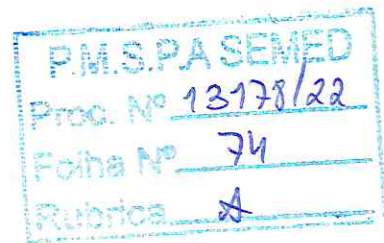 P.M.S.P.A SEMED
Proc. Nº 13178/22
Folha Nº 74
Rubrica